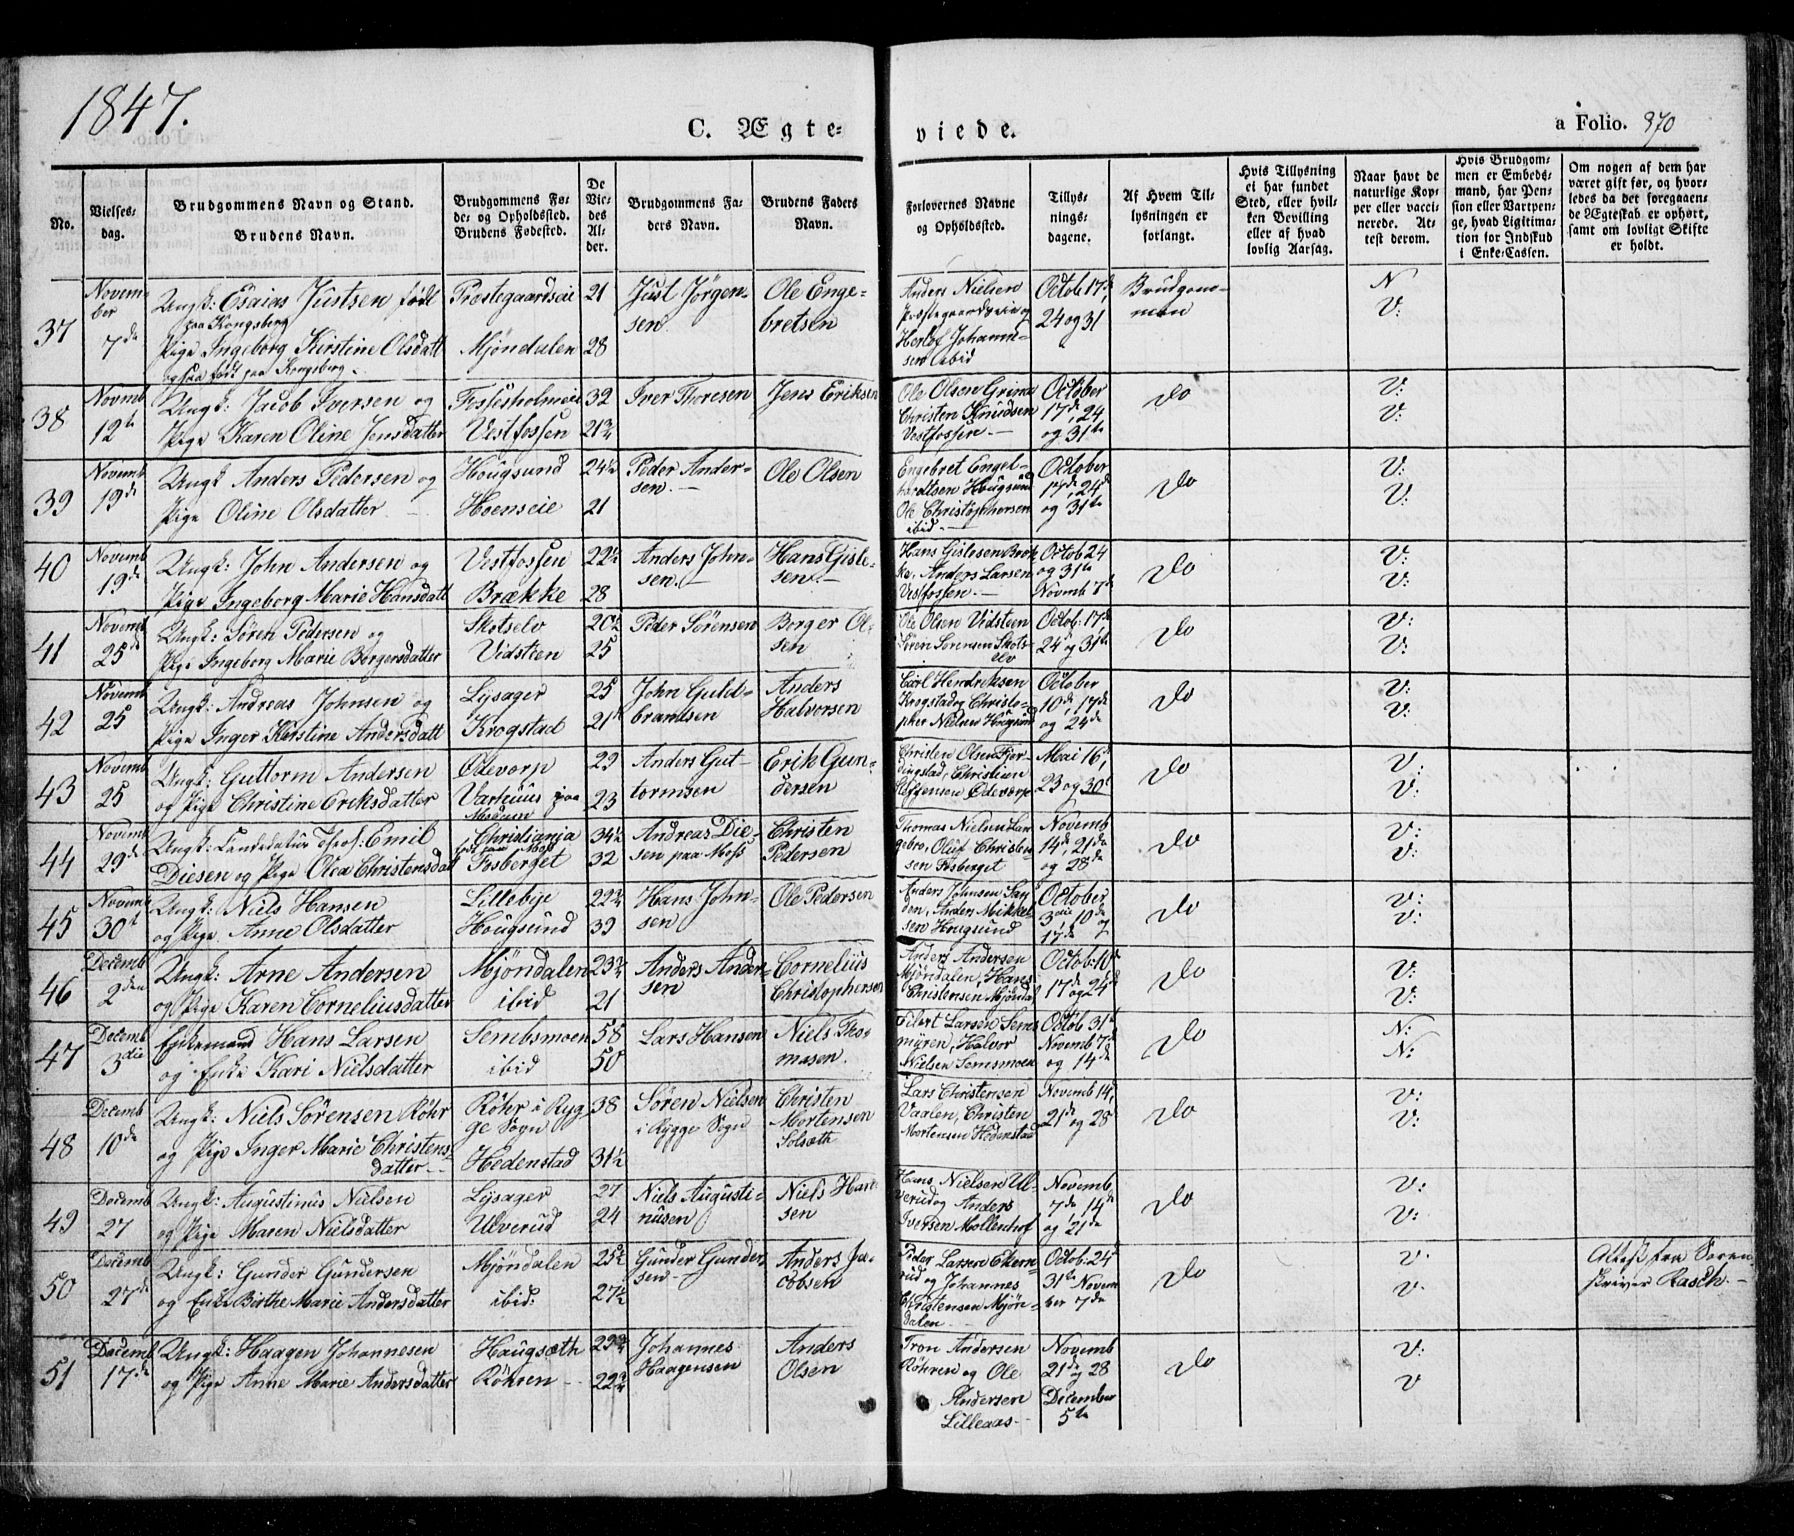 1847.
C. Ægte-
viede.
a Folio. 370
No.
Vielses-
dag.
Brudgommens Navn og Stand.
Brudens Navn.
Brudgommens Fø-
de- og Opholdssted.
Brudens Fødested.
De
Vie-
des
Al-
der.
Brudgommens Fa-
ders Navn.
Brudens Faders
Navn.
Forlovernes Navne
og Opholdssted.
Tillys-
nings-
dagene.
Af Hvem Til-
lysningen er
forlangt.
Hvis Tillysning
ei har fundet
Sted, eller hvil-
ken Bevilling
eller af hvad
lovlig Aarsag.
Naar havt de
naturlige Kop-
per eller vacci-
nerede. At-
test derom.
Hvis Brudgom-
men er Embeds-
mand, har Pen-
sion eller Vartpen-
ge, hvad Legitima-
tion for Indskud
i Enke-Cassen.
Om nogen af dem har
været gift før, og hvor-
ledes da det foregaaen-
de Ægteskab er ophørt,
samt om lovligt Skifte
er holdt.
37
Novem-
ber
7de
Ungk: Esaias Justsen født
paa Kongsberg
Pige Ingeborg Kirstine Olsdatt
ogsaa født paa Kongsberg.
Prostegaardseie
Mjøndalen
21
28
Just Jørgen-
sen
Ole Enge-
bretsen
Anders Nielsen
Præstegaardseie og
Herlof Johanne-
sen ibid
Octob 17de,
24 og 31
Brudgom-
men
N
V:
38
Novmb
12te
Ungk: Jacob Iversen og
Pige Karen Oline Jensdatter
Fossesholmeie
Vestfossen
32
21¾
Iver Thoresen
Jens Eriksen
Ole Olsen Grim
Christen Knudsen
Vestfossen.
October
17de, 24
og 31te
Do
V:
V:
39
Novemb
19de
Ungk Anders Pedersen og
Pige Oline Olsdatter
Hougsund
Hoenseie
24½
21
Peder Ander-
sen.
Ole Olsen
Engebret Engel-
hardtsen Hougsund
Ole Christophersen
ibid.
October
17de, 24de
og 31te
Do
V:
V:
40
Novemb
19de
Ungk: John Andersen og
Pige Ingeborg Marie Hansdatt
Vestfossen
Brække
22½
28
Anders John-
sen.
Hans Gisle-
sen
Hans Gislesen Bræk-
ke, Anders Larsen
Vestfossen.
Octob 24
og 31te
Novemb 7de
Do
V:
V:
41
Novemb
25de
Ungk: Søren Pedersen og
Pige Ingeborg Marie Borgersdatter
Skotselv
Vidsteen
20½
25
Peder Sørensen
Borger Ol-
sen
Ole Olsen Vidsteen
Søren Sørensen Skots-
elv
Octob: 17de
24 og 31te
Do
V:
V:
42
Novemb
25
Ungk: Andreas Johnsen og
Pige Inger Kirstine Andersdatt
Lysager
Krogstad
25
21
John Guld-
brandsen
Anders
Halvorsen
Carl Hendriksen
Krogstad og Christo-
pher Nielsen Hougsund
October
10de, 17de
og 24de
Do
V:
V:
43
Novemb
25
Ungk: Guttorm Andersen
og Pige Christine Eriksdatter
Ødevorp
Varhuus paa
Modum
29
23
Anders Gut-
tormsen
Erik Gun-
dersen
Christen Olsen Fjer-
dingstad, Christian
Steffensen Ødevorp
Mai 16,
23 og 30te
Do
V:
V:
44
Novemb
29de
Ungk: Candidatus Theol: Emil
Diesen og Pige Olea Christensdatt
i Christiania
født paa Moss
Fosberget
34½
32
Andreas Die-
sen paa Moss
Christen
Pedersen
Thomas Nielsen Lan-
gebro, Oluf Christen-
sen Fosberget
Novemb
14de, 21de
og 28de
Do
V:
V:
45
Novemb
30te
Ungk: Niels Hansen
og Pige Anne Olsdatter
Lillebye
Hougsund
22¾
39
Hans John-
sen
Ole Pedersen
Anders Johnsen San-
den, Anders Mikkel-
sen Hougsund
October
3die, 10de og
17de
Do
V:
V:
46
Decemb
2den
Ungk: Arne Andersen
og Pige Karen Corneliusdatter
Mjøndalen
ibid
23½
21
Anders Ander-
sen
Cornelius
Christophersen
Anders Andersen
Mjøndalen, Hans
Christensen Mjøndal
Octob: 10de
17de og 24de
Do
V:
V:
47
Decemb
3die
Enkemand Hans Larsen
og Enke Kari Nielsdatter
Sembsmoen
ibid
58
50
Lars Hansen
Niels Tho-
masen.
Eilert Larsen Sems-
myren, Halvor
Nielsen Semsmoen
Octob 31te
Novemb 7de
og 14de
Do
N:
N:
48
Decemb
10de
Ungk: Niels Sørensen Røhr
og Pige Inger Marie Christens-
datter
Røhr i Ryg-
ge Sogn
Hedenstad
38
31½
Søren Nielsen
i Rygge Sogn
Christen
Mortensen
Solsæth
Lars Christensen
Vaalen, Christen
Mortensen Hedenstad
Novemb 14,
21de og 28
Do
V:
V:
49
Decemb
27
Ungk: Augustinus Nielsen
og Pige Maren Nielsdatter
Lysager
Ulverud
27
24
Niels Augusti-
nusen
Niels Han-
sen
Hans Nielsen Ul-
verud og Anders
Iversen Mollenhof
Novemb
7de, 14de
og 21de
Do
V:
V:
50
Decemb
27de
Ungk: Gunder Gundersen
og Enke Birthe Marie Andersdatter
Mjøndalen
ibid:
25½
27½
Gunder Gunder-
sen
Anders Ja-
cobsen
Peder Larsen Ekern-
rud og Johannes
Christensen Mjøn-
dalen
Octob: 24de
31te Novem
ber 7de
Do
V.
V.
Attest fra Soren-
skriver Rasch.
51
Decemb
17de
Ungk: Haagen Johannesen
og Pige Anne Marie Andersdatter
Haugsæth
Røhren
23¾
22¾
Johannes
Haagensen
Anders
Olsen
Tron Andersen
Røhren og Ole
Andersen
Lilleaas
Novemb
21de og 28
December
5te
Do
V:
V